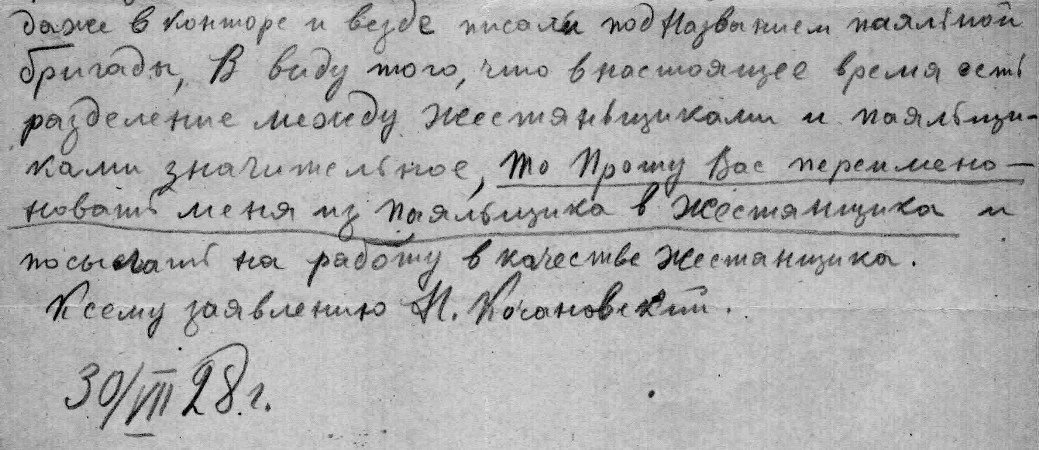 даже в конторе и везде писали под Названием паяльной
бригады, В виду того, что в настоящее время есть
разделение между Жестяньщиками и паяльщи-
ками значительное, то Прошу Вас переимено-
новать меня из паяльщика в Жестянщика и
посылать на работу в качестве жестянщика.
К сему заявлению Н. Кочановский.
30/VII 28.г.